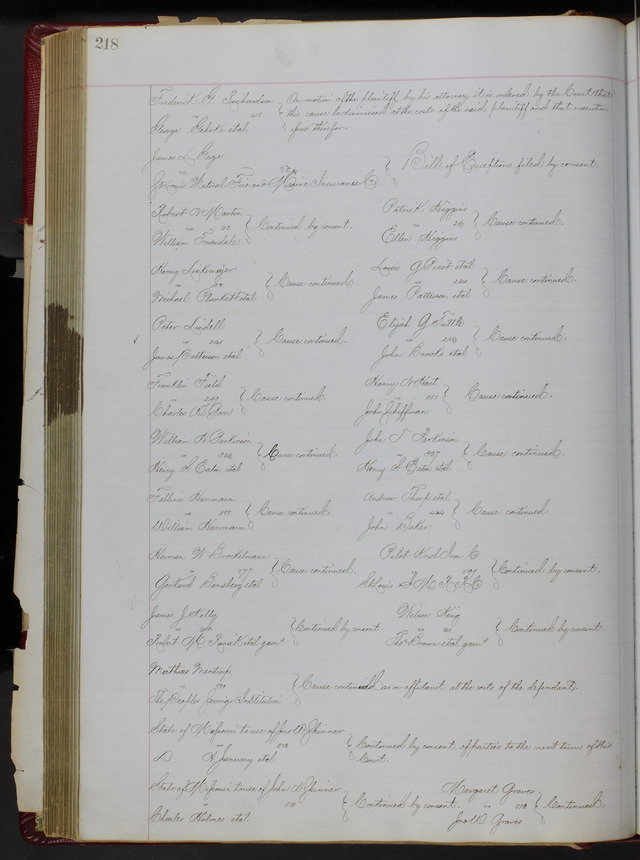 218
Frederick G Richardson
vs
George Gehrke et al
On motion of the plaintiff by his attorney it is ordered by the Court that
this cause be dismissed at the costs of the said plaintiff and that execution
issue therefor
James L Gage
vs
St Louis Mutual Fire and Marine Insurance Co
Bill of Exceptions filed by consent.
Robert N Martin
William Truesdale
Continued by consent.
Patrick Higgins
Ellen Higgins
Cause continued.
Henry
Michael Plunkett et al
Cause continued.
Louis G Picot et al
James Patterson et al
Cause continued.
Peter Lindell
James Patterson et al
Cause continued.
Elijah G Tuttle
John Brooks et al
Cause continued.
Franklin Field
Charles
Cause continued.
Henry N Hart
John Shiffman
Cause continued.
William H Parkinson
Henry S Eaton et al
Cause continued.
John T Parkinson
Henry S Eaton et al
Cause continued.
Herrmann
William Herrmann
Cause continued
Andrew Thorp et al
John Baker
Cause continued
Herman W Brockelmann
577
Gerhard Bensberg et al
Cause continued.
Pilot Knob Iron Co
St Louis & I M R R Co
Continued by consent.
James J Kelly
Robert M et al garn
Continued by consent.
Wilson King
Thos Brown et al garn
Continued by consent.
Mathias Mentrup
The Peoples Savings Institution
Cause continued as on affidavit, at the costs of the defendants.
State of Missouri to use of Jno D Skinner
D January et al
Continued by consent of parties to the next term of this
Court.
State of Missouri to use of John D Skinner
Charles Holmes et al
Continued by consent.
Margaret Graves
Jno D Graves
Continued.